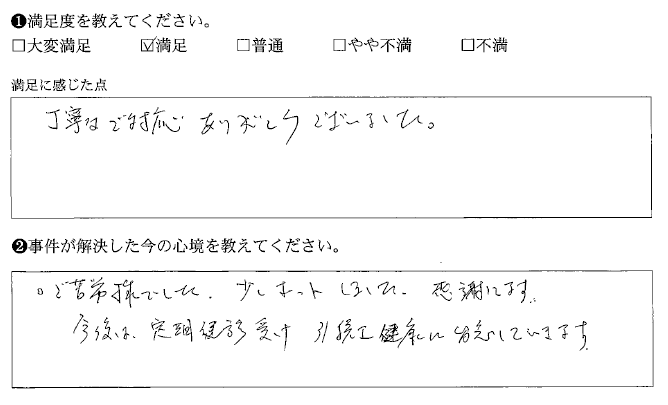 ❶満足度を教えてください。
□大変満足 ☑満足 □普通 □やや不満 □不満
満足に感じた点
丁寧なご対応 ありがとうございました。
❷事件が解決した今の心境を教えてください。
○ご苦労様でした。少しホットしました。感謝します。
今後は、定期健診受け 引続き健康に留意していきます。